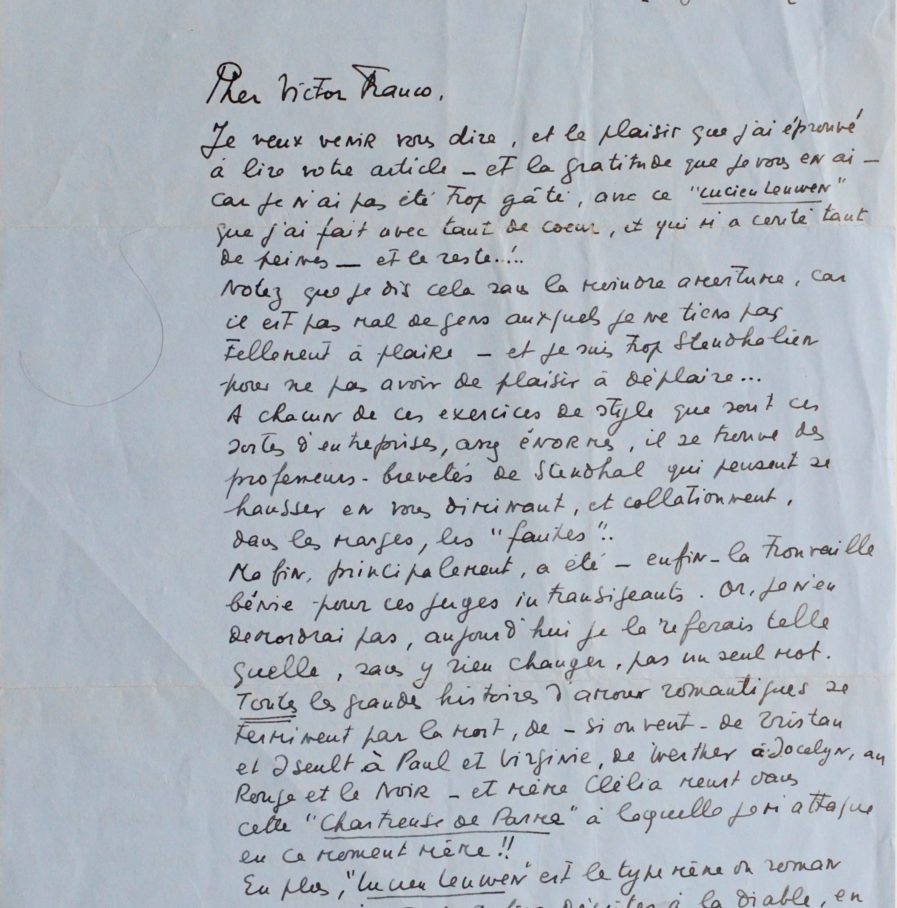 Cher Victor Franco,
Je veux venir vous dire, et le plaisir que j'ai éprouvé
à lire votre article – et la gratitude que je vous en ai –
car je n'ai pas été trop gâté, avec ce "Lucien Leuwen"
que j'ai fait avec tant de coeur, et qui m'a coûté tant
de peines – et le reste...
Notez que je dis cela sans la moindre amertume, car
il est pas mal de gens auxquels je ne tiens pas
tellement à plaire – et je suis trop Stendhalien
pour ne pas avoir de plaisir à déplaire...
A chacun de ces exercices de style que sont ces
sortes d'entreprises, assez énormes, il se trouve des
professeurs-brevetés de Stendhal qui pensent se
hausser en vous diminuant, et collationnent,
dans les marges, les "fautes"..
Ma fin, principalement, a été – enfin – la trouvaille
bénie pour ces juges intransigeants. Or, je n'en
démordrai pas, aujourd'hui je la referais telle
quelle, sans y rien changer, pas un seul mot.
Toutes les grandes histoires d'amour romantiques se
terminent par la mort, de – si on veut – de Tristan
et Iseult à Paul et Virginie, de Werther à Jocelyn, au
Rouge et le Noir – et même Clélia meurt dans
cette "Chartreuse de Parme" à laquelle je m'attaque
en ce moment même !!
En plus, "Lucien Leuwen" est le type même du roman
à la diable, en